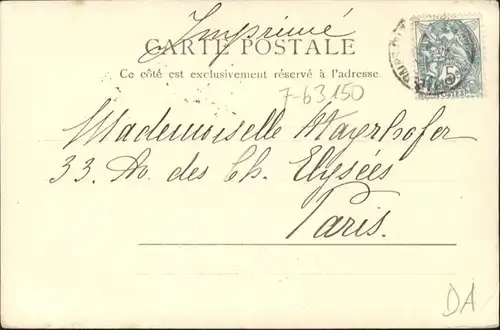 Imprimé
CARTE POSTALE
Ce côté est exclusivement réservé à l'adresse.
7-63150
Mademoiselle Mayrhofer
33. Av. des Ch. Elysées
Paris.
DA